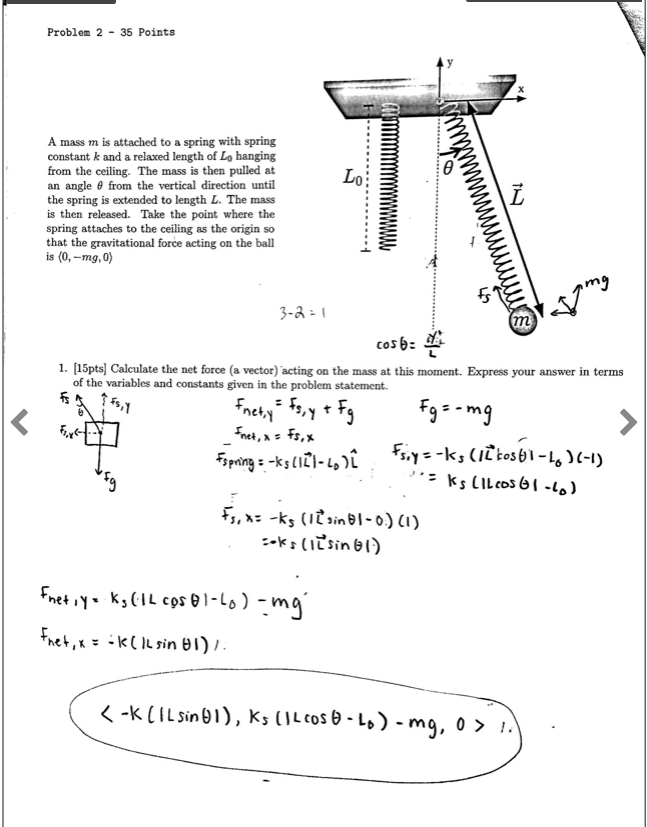 Problem 2 - 35 Points
y
x
A mass m is attached to a spring with spring
constant k and a relaxed length of L₀ hanging
from the ceiling. The mass is then pulled at
an angle θ from the vertical direction until
the spring is extended to length L. The mass
is then released. Take the point where the
spring attaches to the ceiling as the origin so
that the gravitational force acting on the ball
is ⟨0, −mg, 0⟩
L₀
θ
L⃗
Fs
mg
m
3-2=1
cosθ=
L
1. [15pts] Calculate the net force (a vector) acting on the mass at this moment. Express your answer in terms
of the variables and constants given in the problem statement.
Fs
Fs,y
θ
Fs,x
Fg
Fnet,y = Fs,y + Fg
Fg = -mg
Fnet,x = Fs,x
Fspring = -ks(|L⃗|-L₀)L̂
Fs,y = -ks(|L⃗cosθ|-L₀)(-1)
= ks(|Lcosθ|-L₀)
Fs,x = -ks(|L⃗sinθ|-0)(1)
= -ks(|L⃗sinθ|)
Fnet,y = ks(|Lcosθ|-L₀) -mg
Fnet,x = -k(|Lsinθ|)
< -k(|Lsinθ|), ks(|Lcosθ-L₀) -mg, 0 >